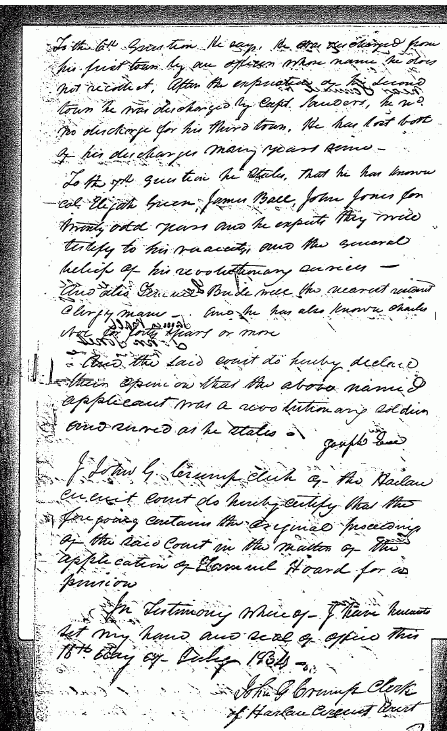 To the 6th Question He says, He was discharged from
his first tour by an officer whose name he does
not recollect. After the expiration of the second
tour he was discharged by Capt. Sanders, he
no discharge for his third tour. He has lost both
of his discharges many years since –
To the 7th Question he states, that he has known
Col Elijah Green, James Ball, John Jones for
twenty odd years and he expects they will
testify to his veracity and the general
belief of his revolutionary services –
And also Bride were the nearest
Clergy man – and he has also known Charles
for forty years or more
And the said court do hereby declare
their opinion that the above named
applicant was a revolutionary soldier
and served as he states –
I John G Crump Clerk of the Harlan
circuit court do hereby certify that the
foregoing contains the original proceedings
of the said Court in the matter of the
application of Hoard for a
pension
In Testimony whereof I have hereunto
set my hand and seal of office this
18th day of July 1834 –
John G Crump Clerk
of Harlan Circuit Court